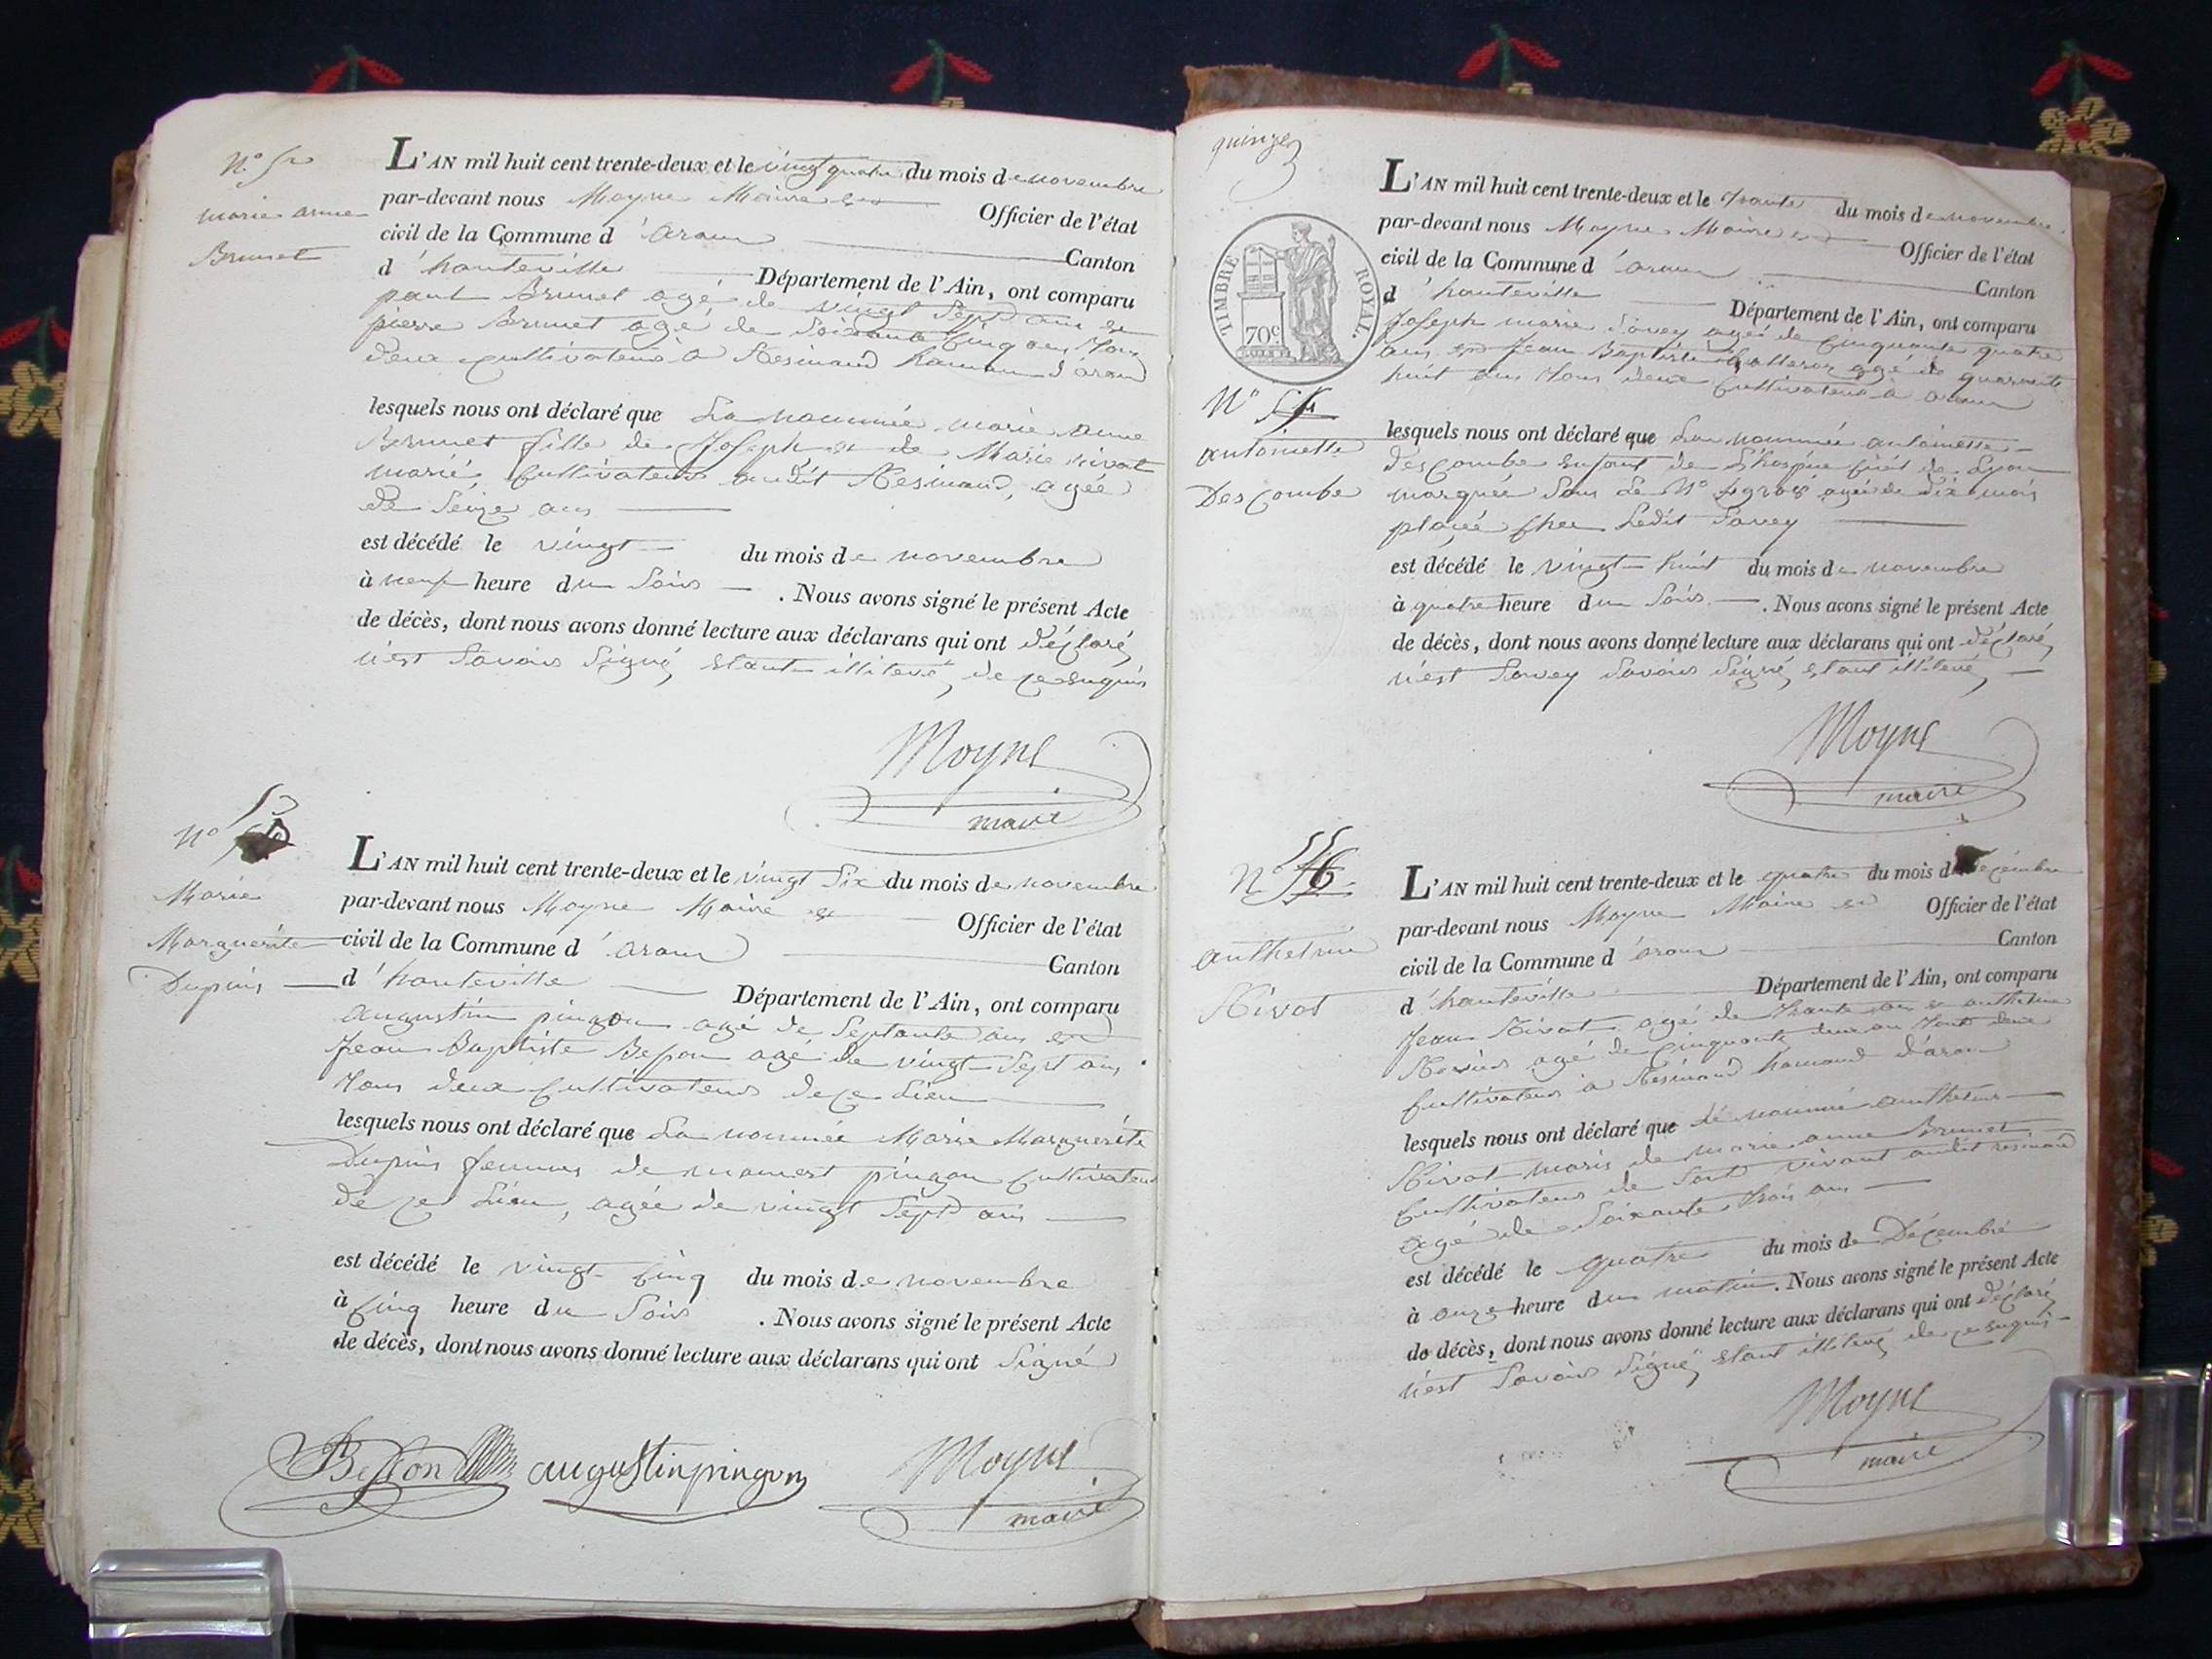 N°
marie anne
Brunet
L'AN mil huit cent trente-deux et le vingt quatre du mois de novembre
par-devant nous Moyne Maire et Officier de l'état
civil de la Commune d'aran Canton
d'hauteville Département de l'Ain, ont comparu
paul Brunet agé de vingt Sept ans et
pierre Brunet agé de Soixante Cinq ans tous
deux Cultivateurs à Resinand hamau d'aran
lesquels nous ont déclaré que La nommée marie anne
Brunet fille de Joseph et de Marie rivat
marié, Cultivateurs audit Resinand, agée
de Seize ans
est décédé le vingt du mois de novembre
à neuf heure du Soir. Nous avons signé le présent Acte
de décès, dont nous avons donné lecture aux déclarans qui ont déclaré
n'est Savoir Signé, Etant illiteré, de ce enquis
Moyne
maire
N° 53
Marie
Marguerite
Dupuis
L'AN mil huit cent trente-deux et le vingt Six du mois de novembre
par-devant nous Moyne Maire et Officier de l'état
civil de la Commune d'aran Canton
d'hauteville Département de l'Ain, ont comparu
augustin pingon agé de Septante ans et
Jean Baptiste Besson agé de vingt Sept ans
tous deux Cultivateurs de ce Lieu
lesquels nous ont déclaré que La nommée Marie Marguerite
Dupuis femme de pingon Cultivateur
de ce Lieu, agée de vingt Sept ans
est décédé le vingt Cinq du mois de novembre
à Cinq heure du Soir. Nous avons signé le présent Acte
de décès, dont nous avons donné lecture aux déclarans qui ont Signé
Besson augustin pingon Moyne
maire
quinze
TIMBRE ROYAL.
70c.
N°
antoinette
Descombe
L'AN mil huit cent trente-deux et le trante du mois de novembre
par-devant nous Moyne Maire et Officier de l'état
civil de la Commune d'aran Canton
d'hauteville Département de l'Ain, ont comparu
Joseph marie Savey agé de Cinquante quatre
ans et Jean Baptiste agé de quarante
huit ans tous deux Cultivateurs à aran
lesquels nous ont déclaré que La nommée antoinette
descombe Enfant de L'hospice de Lyon
marquée Sous Le N° agée de dix mois
placé chez Ledit Savey
est décédé le vingt huit du mois de novembre
à quatre heure du Soir. Nous avons signé le présent Acte
de décès, dont nous avons donné lecture aux déclarans qui ont déclaré
n'est Savey Savoir Signé, Etant illiteré,
Moyne
maire
N° 55
anthelme
Rivat
L'AN mil huit cent trente-deux et le quatre du mois de Décembre
par-devant nous Moyne Maire et Officier de l'état
civil de la Commune d'aran Canton
d'hauteville Département de l'Ain, ont comparu
Jean Rivat agé de trante ans et anthelme
agé de Cinquante deux ans tous deux
Cultivateurs à Resinand hamaud d'aran
lesquels nous ont déclaré que Le nommé anthelme
Rivat maris de marie anne Brunet
Cultivateurs de Sont vivant audit resinand
agé de Soixante trois ans
est décédé le quatre du mois de Décembre
à onze heure du matin. Nous avons signé le présent Acte
de décès, dont nous avons donné lecture aux déclarans qui ont déclaré
n'est Savoir Signé, Etant illiteré, de ce enquis
Moyne
maire